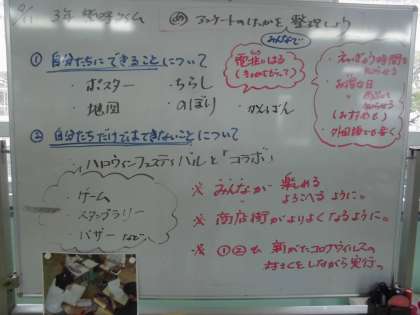 9/11 3年
め アンケートのけっかを整理しよう
みんなで
① 自分たちにできることについて
・ポスター ・ちらし
・地図 ・のぼり ・かんばん
電柱にはる
(きょかをとって)
・えいぎょう時間を
知らせる
・お得な日
知らせる
(おすすめも)
・外国語でも書く
② 自分たちだけではできないことについて
ハロウィーンフェスティバルと「コラボ」
・ゲーム
・スタンプラリー
・バザー など
※ みんなが楽しめる
よろこべるように。
※ 商店街がよりよくなるように。
※ ①②も 新がたコロナウイルスの
対さくをしながら実行。